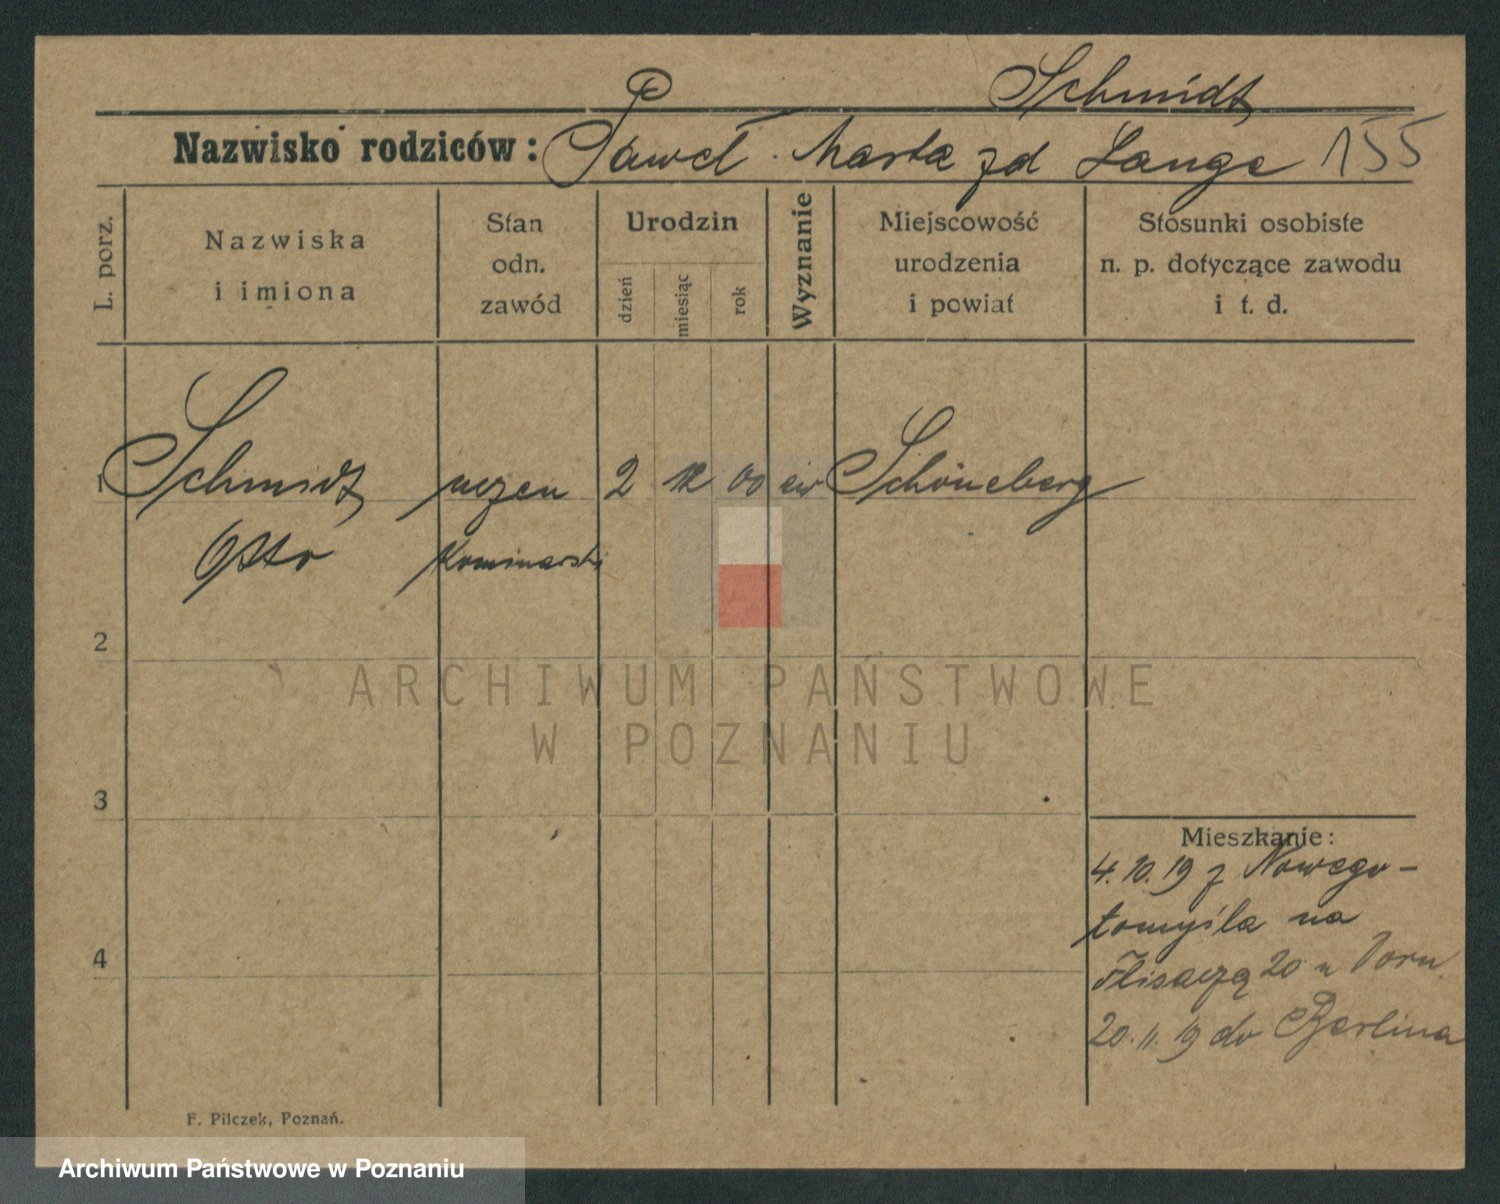 Schmidt
Nazwisko rodziców: Paweł. Marta zd Lange 155
L. porz.
Nazwiska
i imiona
Stan
odn.
zawód
Urodzin
dzień
miesiąc
rok
Wyznanie
Miejscowość
urodzenia
i powiat
Stosunki osobiste
n. p. dotyczące zawodu
i t. d.
1 Schmidt uczeń 2 12 00 ew Schöneberg
Otto kominiarski
2
3
4
Mieszkanie:
4.10.19 z Nowego-
tomyśla na
Flisaczą 20 u
20.11.19 do Berlina
F. Pilczek, Poznań.
ARCHIWUM PAŃSTWOWE
W POZNANIU
Archiwum Państwowe w Poznaniu